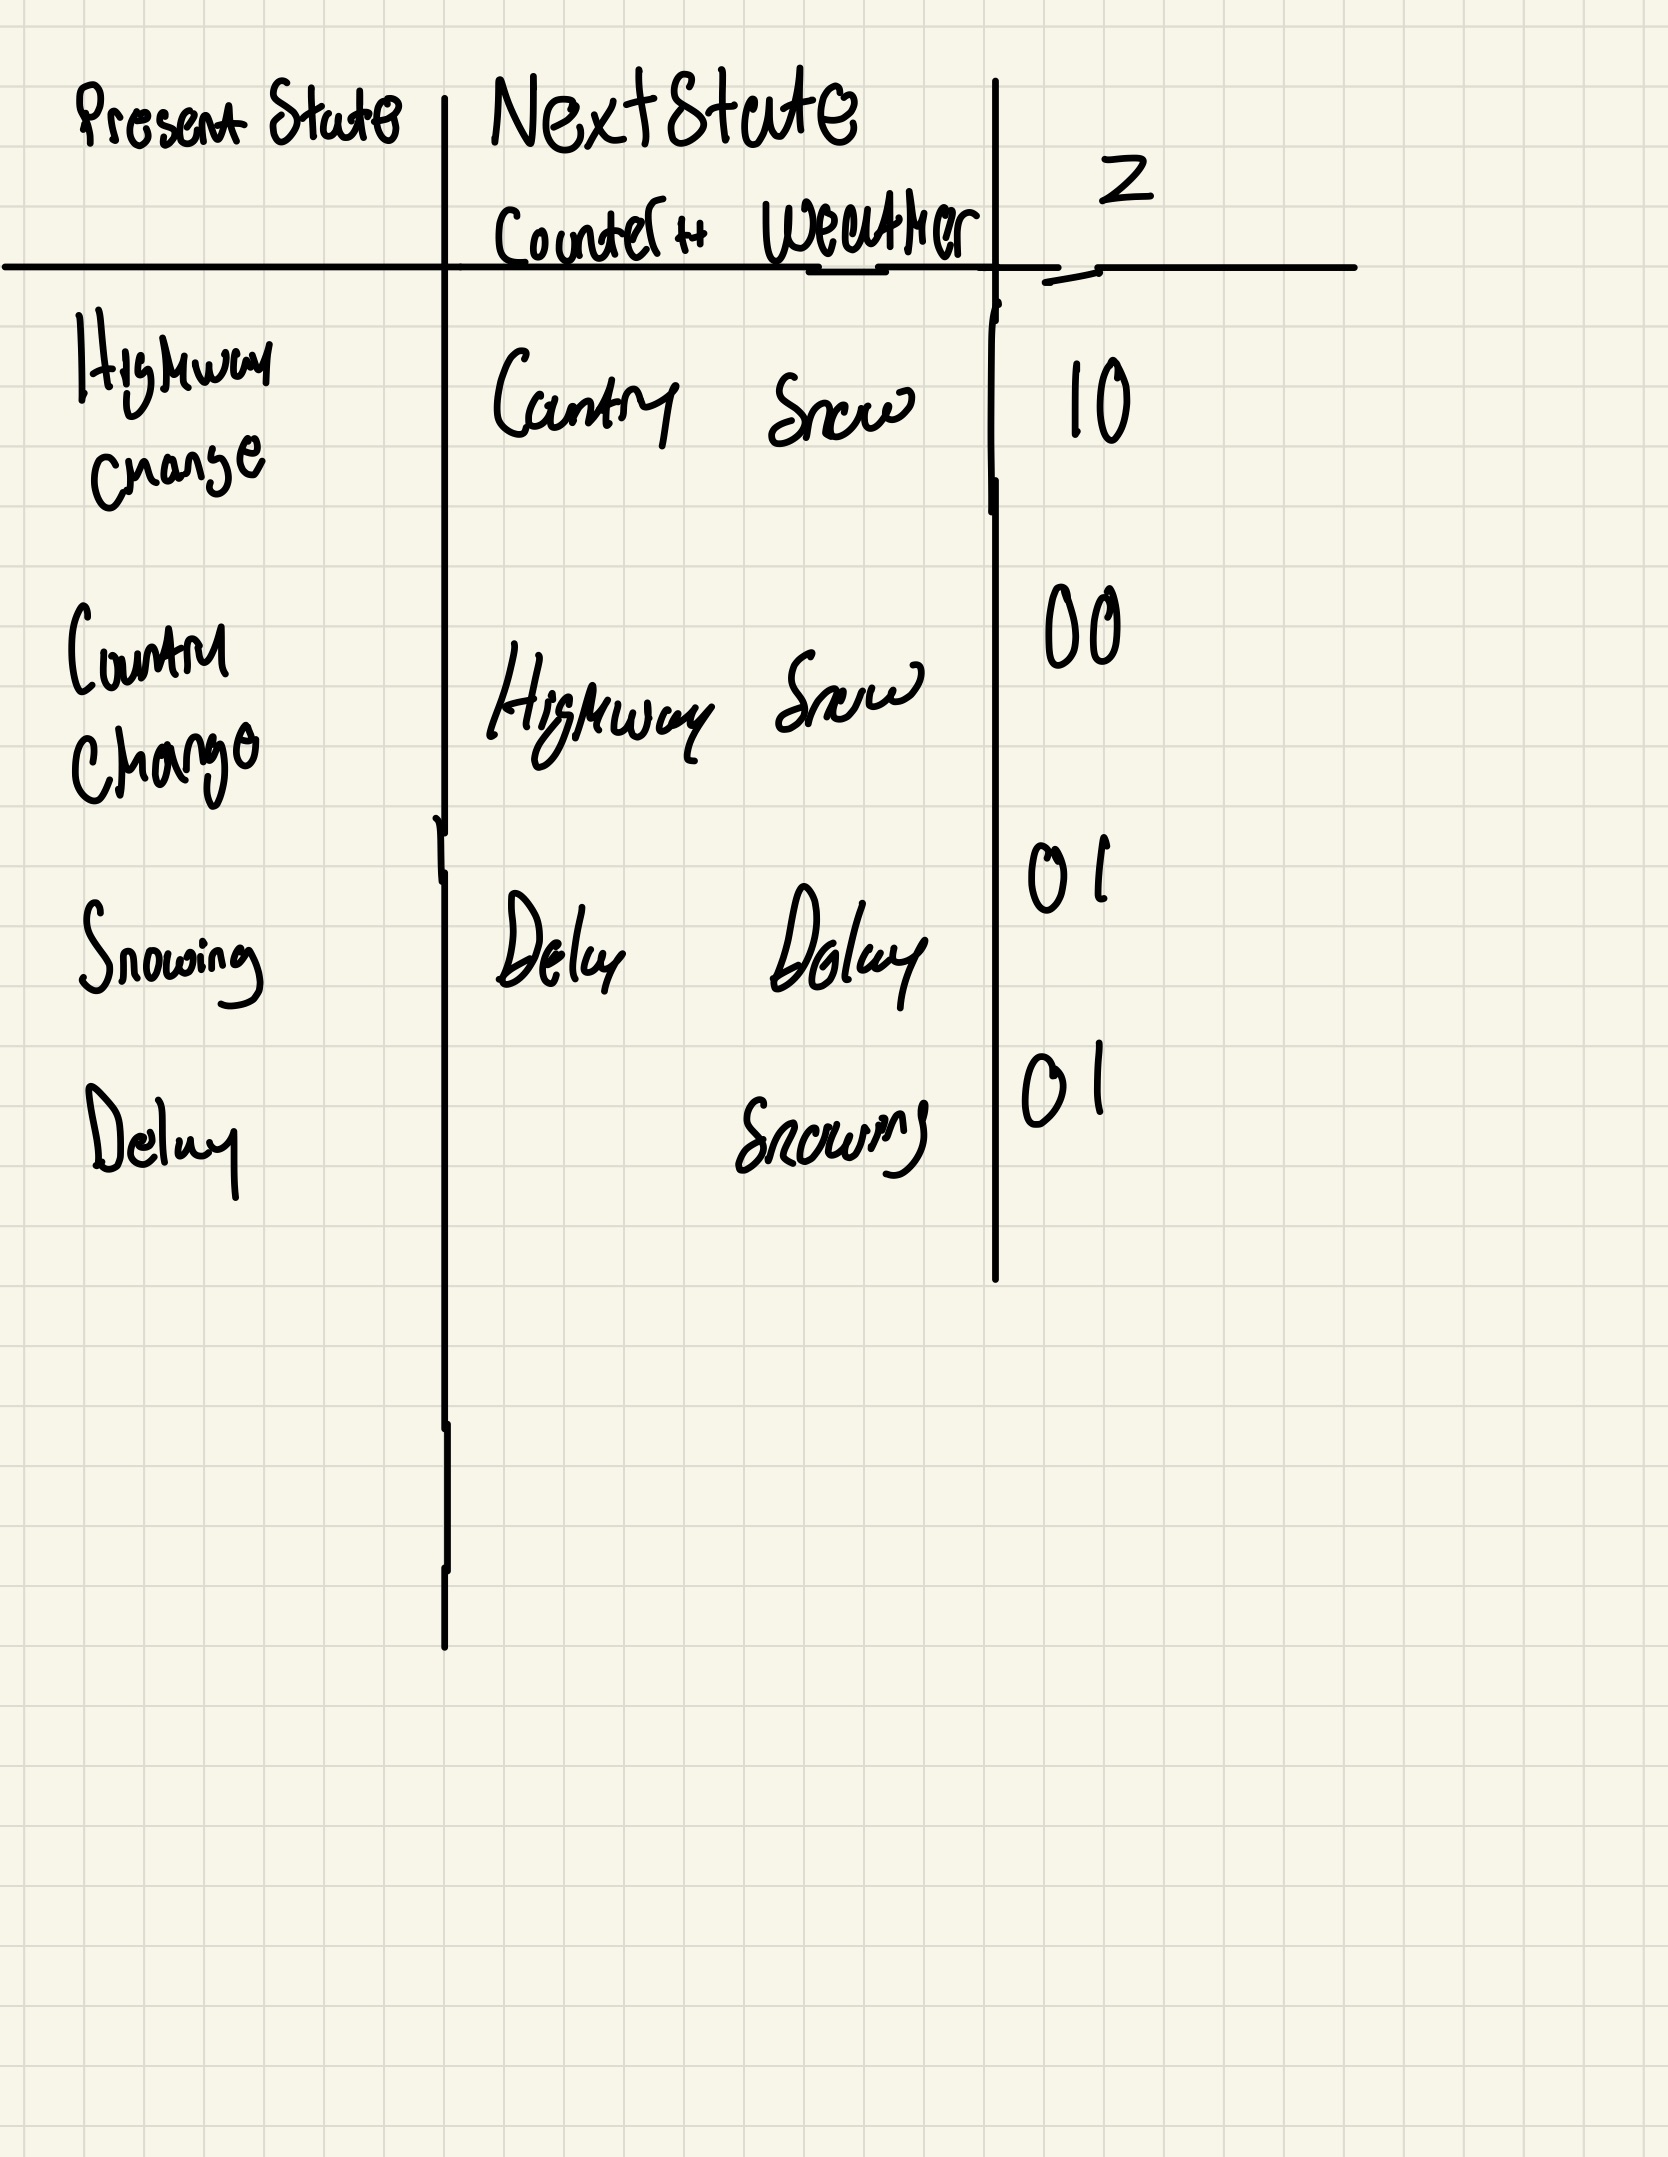 Present State NextState
Counter++ Weather Z
Highway
Change
Country Snow 10
Country
Change
Highway Snow 00
Snowing Delay Delay 01
Delay Snowing 01